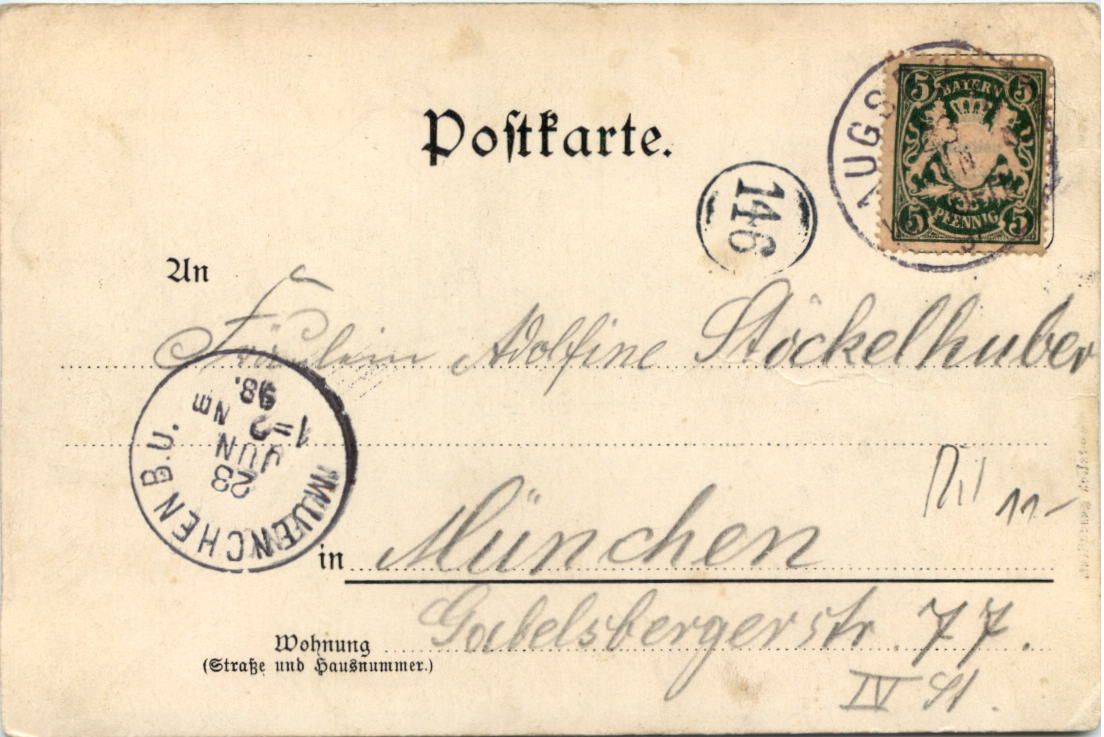 Postkarte.
5 BAYERN 5
5 PFENNIG 5
AUGS
146
An
Fräulein Adolfine Stöckelhuber
MUENCHEN B.U.
23
JUN
1=2
Nm
98.
11-
in München
Wohnung Gabelsbergerstr. 77.
(Straße und Hausnummer.)
IV St.